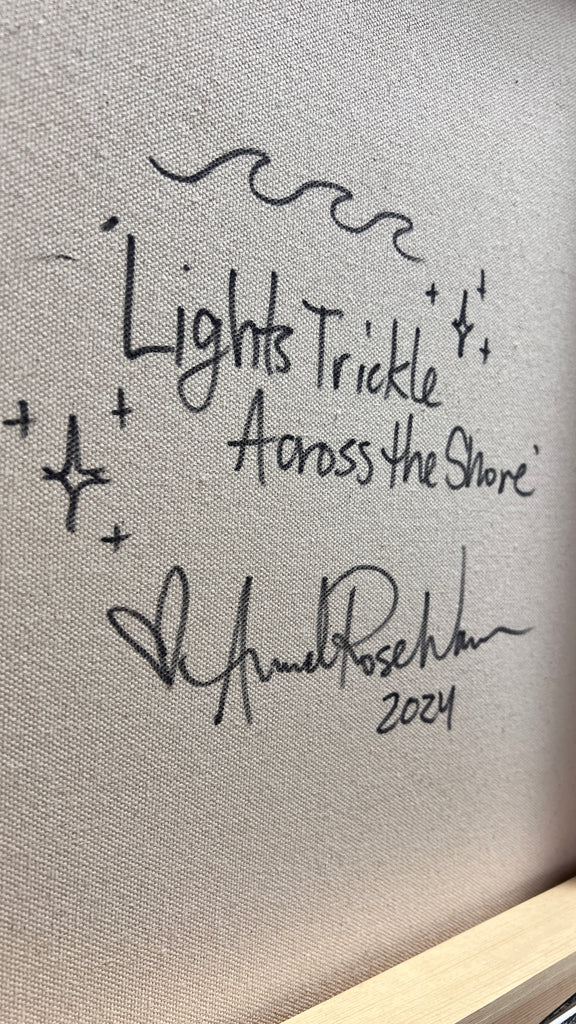 'Lights Trickle
Across the Shore'
Rose
2024